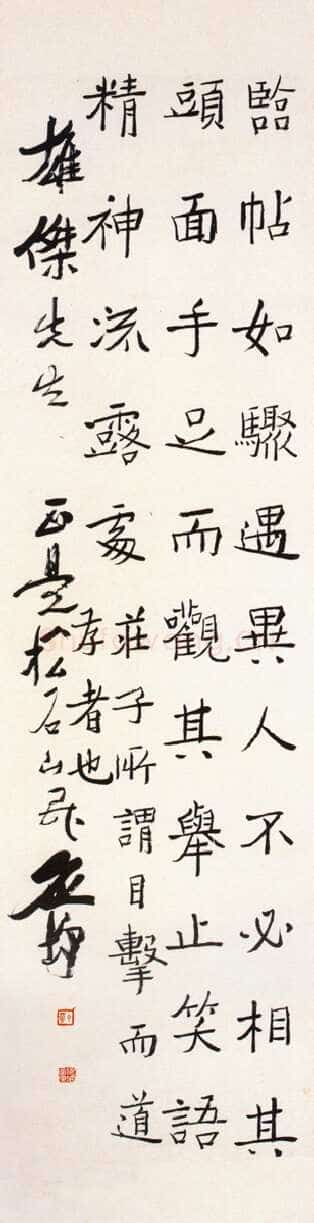 臨帖如驟遇異人不必相其
頭面手足而觀其舉止笑語
精神流露處莊子所謂目擊而道
存者也
雄傑先生 正 松石山